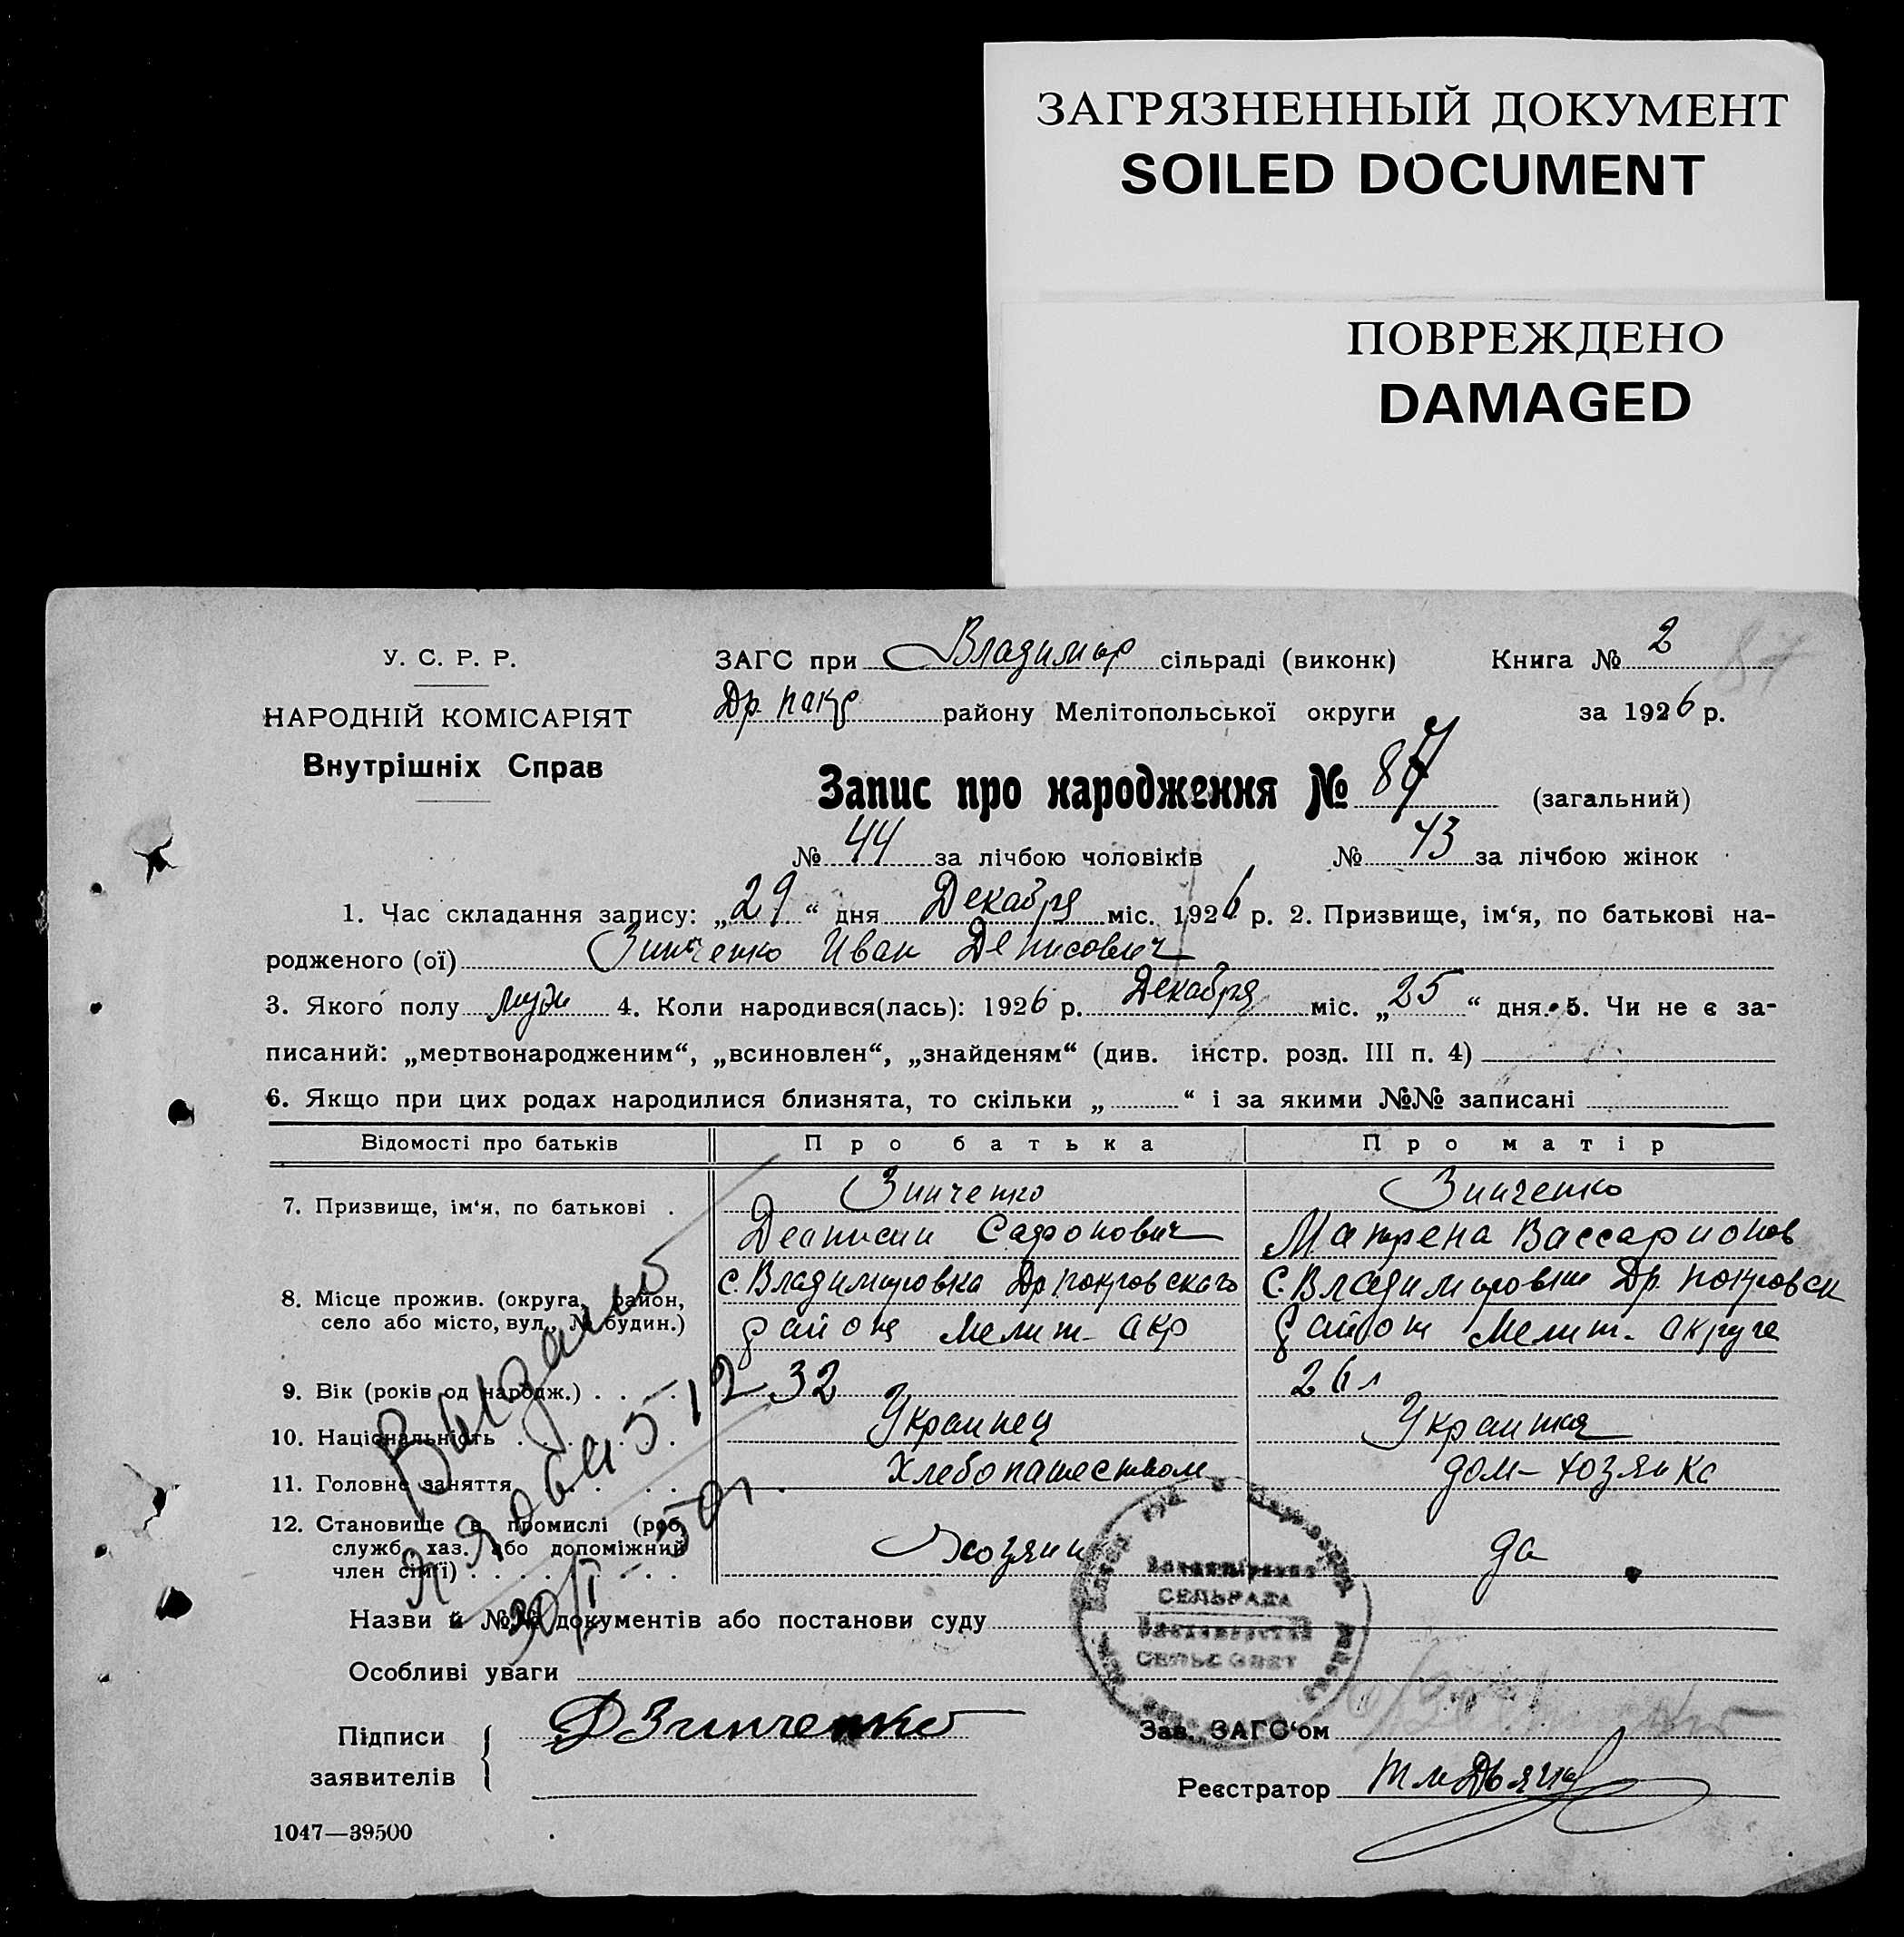 ЗАГРЯЗНЕННЫЙ ДОКУМЕНТ
SOILED DOCUMENT
ПОВРЕЖДЕНО
DAMAGED
У. С. Р. Р.
НАРОДНІЙ КОМІСАРІЯТ
Внутрішніх Справ
ЗАГС при Владимир сільраді (виконк) Книга № 2 87
Др. покр району Мелітопольської округи за 1926 р.
Запис про народження № 87 (загальний)
№ 44 за лічбою чоловіків № 43 за лічбою жінок
1. Час складання запису: „29“ дня Декабря міс. 1926 р. 2. Призвище, ім‘я, по батькові на-
родженого (ої) Зинченко Иван Денисович
3. Якого полу муж 4. Коли народився(лась): 1926 р. Декабря міс. „25“ дня. 5. Чи не є за-
писаний: „мертвонародженим“, „всиновлен“, „знайденям“ (див. інстр. розд. III п. 4)
6. Якщо при цих родах народилися близнята, то скільки „ “ і за якими №№ записані
Відомості про батьків Про батька Про матір
7. Призвище, ім‘я, по батькові . Зинченко Зинченко
Сафонович Матрена Вассарионов
8. Місце прожив. (округа, район, с. Владимировка Др. покровского с. Др. покровск
село або місто, вул., № будин.) района Мелит. акр Мелит. округа
9. Вік (років од народж.) . . . . 32 26 л
10. Національність . . . . . . Украинец Украинка
11. Головне заняття . . . . . Хлебопашеством дом-хозяйка
12. Становище в промислі (роб.
служб. хаз. або допоміжний Хозяин да
член сім‘ї) . . . . . . . . .
Выдано
30/I - 50 г.
Назви й №№ документів або постанови суду
Особливі уваги
СЕЛЬРАДА
СЕЛЬСОВЕТ
Підписи ДЗинченко Зав. ЗАГС‘ом
заявителів Реєстратор
1047—39500